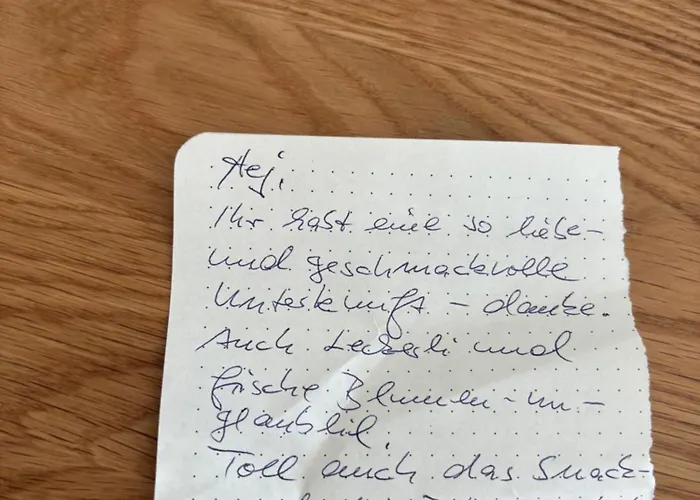 Hej,
Ihr habt eine so liebe-
und geschmackvolle
Unterkunft - danke.
Auch Leckerli und
frische Blumen - un-
glaublich.
Toll auch das Snack-